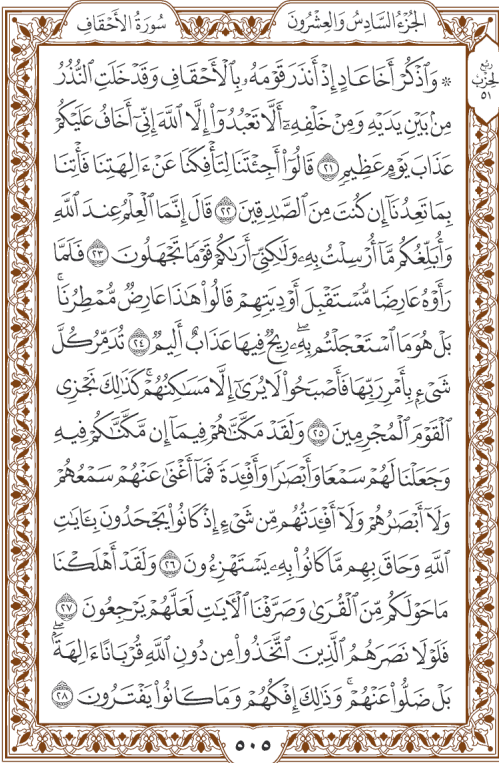 سُورَةُ الأَحْقَافِ
الجُزْءُ السَّادِسُ وَالعِشْرُونَ
ربع
الحزب
٥١
۞ وَٱذْكُرْ أَخَا عَادٍ إِذْ أَنذَرَ قَوْمَهُۥ بِٱلْأَحْقَافِ وَقَدْ خَلَتِ ٱلنُّذُرُ
مِنۢ بَيْنِ يَدَيْهِ وَمِنْ خَلْفِهِۦٓ أَلَّا تَعْبُدُوٓا۟ إِلَّا ٱللَّهَ إِنِّىٓ أَخَافُ عَلَيْكُمْ
عَذَابَ يَوْمٍ عَظِيمٍ ٢١ قَالُوٓا۟ أَجِئْتَنَا لِتَأْفِكَنَا عَنْ ءَالِهَتِنَا فَأْتِنَا
بِمَا تَعِدُنَآ إِن كُنتَ مِنَ ٱلصَّٰدِقِينَ ٢٢ قَالَ إِنَّمَا ٱلْعِلْمُ عِندَ ٱللَّهِ
وَأُبَلِّغُكُم مَّآ أُرْسِلْتُ بِهِۦ وَلَٰكِنِّىٓ أَرَىٰكُمْ قَوْمًا تَجْهَلُونَ ٢٣ فَلَمَّا
رَأَوْهُ عَارِضًا مُّسْتَقْبِلَ أَوْدِيَتِهِمْ قَالُوا۟ هَٰذَا عَارِضٌ مُّمْطِرُنَا ۚ
بَلْ هُوَ مَا ٱسْتَعْجَلْتُم بِهِۦ ۖ رِيحٌ فِيهَا عَذَابٌ أَلِيمٌ ٢٤ تُدَمِّرُ كُلَّ
شَىْءٍۭ بِأَمْرِ رَبِّهَا فَأَصْبَحُوا۟ لَا يُرَىٰٓ إِلَّا مَسَٰكِنُهُمْ ۚ كَذَٰلِكَ نَجْزِى
ٱلْقَوْمَ ٱلْمُجْرِمِينَ ٢٥ وَلَقَدْ مَكَّنَّٰهُمْ فِيمَآ إِن مَّكَّنَّٰكُمْ فِيهِ
وَجَعَلْنَا لَهُمْ سَمْعًا وَأَبْصَٰرًا وَأَفْـِٔدَةً فَمَآ أَغْنَىٰ عَنْهُمْ سَمْعُهُمْ
وَلَآ أَبْصَٰرُهُمْ وَلَآ أَفْـِٔدَتُهُم مِّن شَىْءٍ إِذْ كَانُوا۟ يَجْحَدُونَ بِـَٔايَٰتِ
ٱللَّهِ وَحَاقَ بِهِم مَّا كَانُوا۟ بِهِۦ يَسْتَهْزِءُونَ ٢٦ وَلَقَدْ أَهْلَكْنَا
مَا حَوْلَكُم مِّنَ ٱلْقُرَىٰ وَصَرَّفْنَا ٱلْـَٔايَٰتِ لَعَلَّهُمْ يَرْجِعُونَ ٢٧
فَلَوْلَا نَصَرَهُمُ ٱلَّذِينَ ٱتَّخَذُوا۟ مِن دُونِ ٱللَّهِ قُرْبَانًا ءَالِهَةًۢ ۖ
بَلْ ضَلُّوا۟ عَنْهُمْ ۚ وَذَٰلِكَ إِفْكُهُمْ وَمَا كَانُوا۟ يَفْتَرُونَ ٢٨
٥٠٥